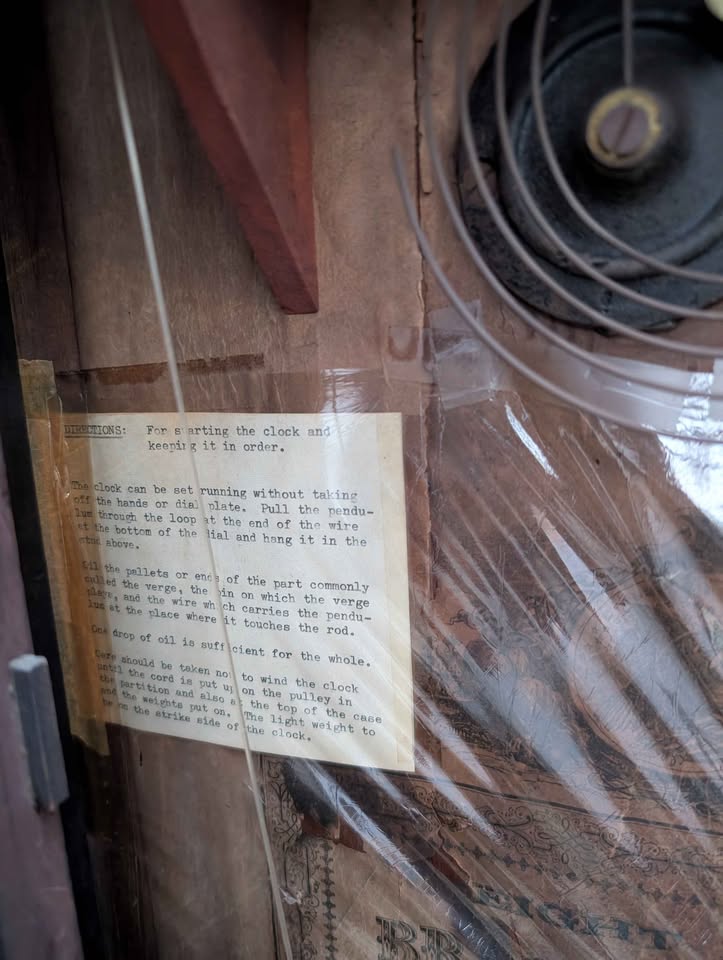 DIRECTIONS: For starting the clock and
keeping it in order.
The clock can be set running without taking
off the hands or dial plate. Pull the pendu-
lum through the loop at the end of the wire
at the bottom of the dial and hang it in the
stud above.
Oil the pallets or ends of the part commonly
called the verge, the pin on which the verge
plays, and the wire which carries the pendu-
lum at the place where it touches the rod.
One drop of oil is sufficient for the whole.
Care should be taken not to wind the clock
until the cord is put up on the pulley in
the partition and also at the top of the case
and the weights put on. The light weight to
be on the strike side of the clock.
EIGHT
BR